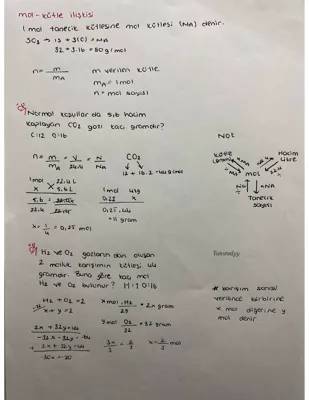 mol-kütle ilişkisi
1 mol tanecik kütlesine mol kütlesi (MA) denir.
SO3 → 1S + 3(O) = MA
32 + 3.16 = 80 g/mol
n = m / MA
m verilen kütle
MA = 1 mol
n = mol sayısı
Normal koşullar da 5,6 hacim
kaplayan CO2 gazı kaç gramdır?
C:12 O:16
NOT
n = m/MA = V/22.4 = N/NA
CO2
12 + 16.2 = 44 gram
1 mol 22.4 L
x 5.6 L
1 mol 44g
0,25 x
0,25.44
= 11 gram
x = 1/4 = 0,25 mol
kütle
(gram)
Hacim
Litre
mol
Tanecik
sayısı
H2 ve O2 gazların dan oluşan
2 mollük karışımın kütlesi 44
gramdır. Buna göre kaç mol
H2 ve O2 bulunur? H:1 O:16
H2 + O2 = 2
x + y = 2
x mol H2
2x gram
y mol O2
32 gram
2x + 32y = 44
-32x - 32y = -64
+ 2x + 32y = 44
-30x = -20
# karışım sorusu
verilince birbirine
x mol diğerine y
mol denir